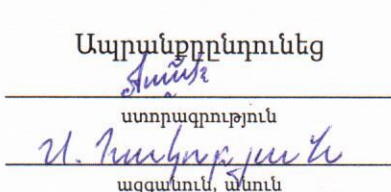 Ապրանքըընդունեց
ստորագրություն
Ա. Հակոբյան
ազգանուն, անուն